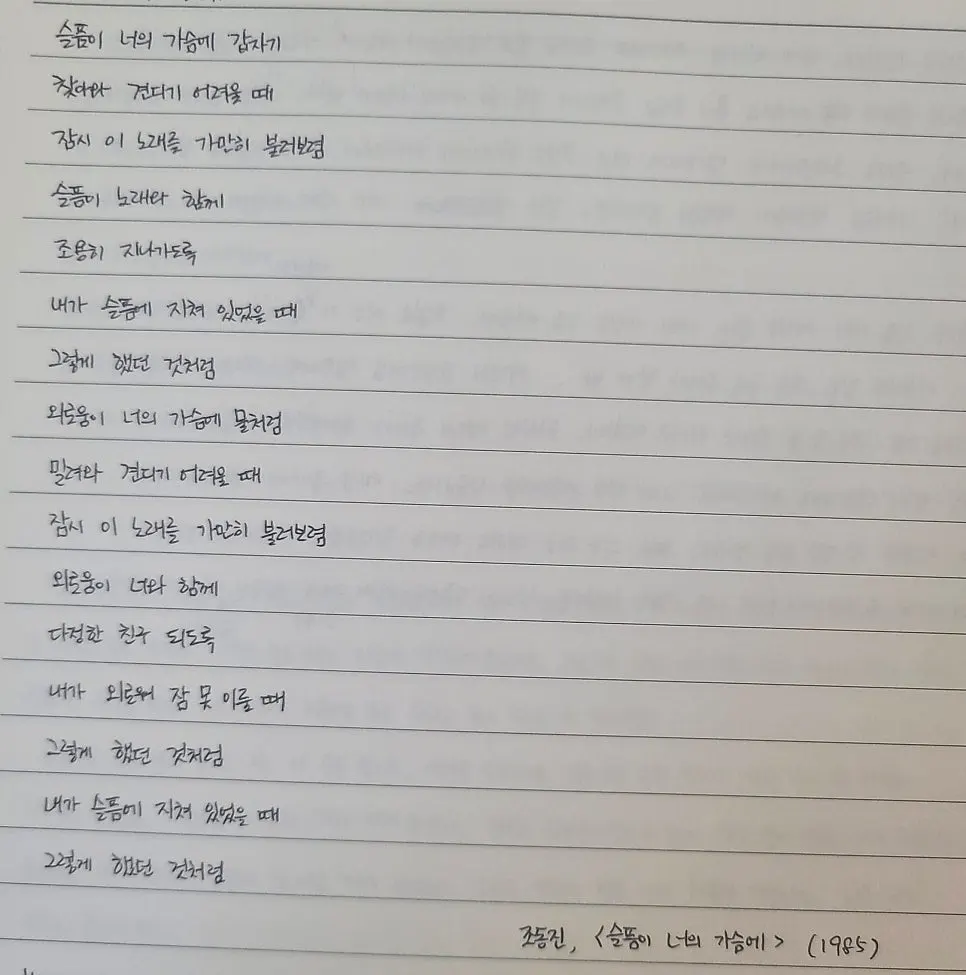 슬픔이 너의 가슴에 갑자기
찾아와 견디기 어려울 때
잠시 이 노래를 가만히 불러보렴
슬픔이 노래와 함께
조용히 지나가도록
내가 슬픔에 지쳐 있었을 때
그렇게 했던 것처럼
외로움이 너의 가슴에 물처럼
밀려와 견디기 어려울 때
잠시 이 노래를 가만히 불러보렴
외로움이 너와 함께
다정한 친구 되도록
내가 외로워 잠 못 이룰 때
그렇게 했던 것처럼
내가 슬픔에 지쳐 있었을 때
그렇게 했던 것처럼
조동진, <슬픔이 너의 가슴에> (1985)